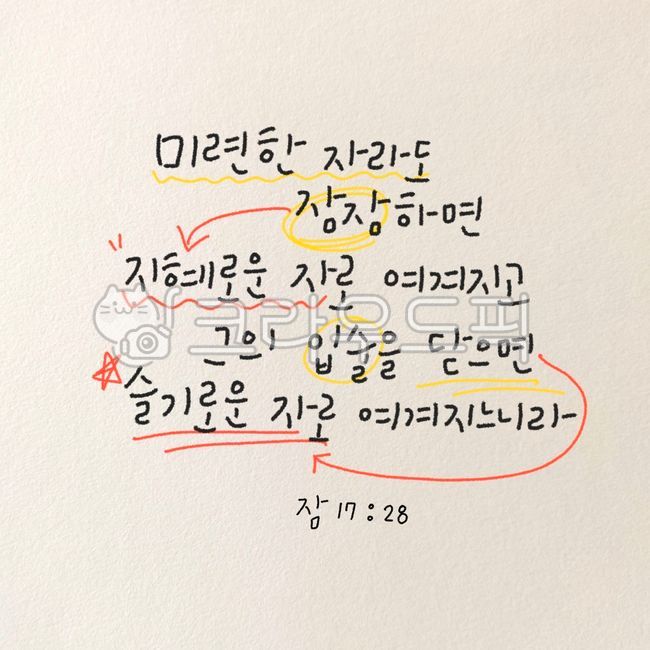 미련한 자라도
잠잠하면
지혜로운 자로 여겨지고
크라우드픽
그의 입술을 닫으면
슬기로운 자로 여겨지느니라
잠 17:28